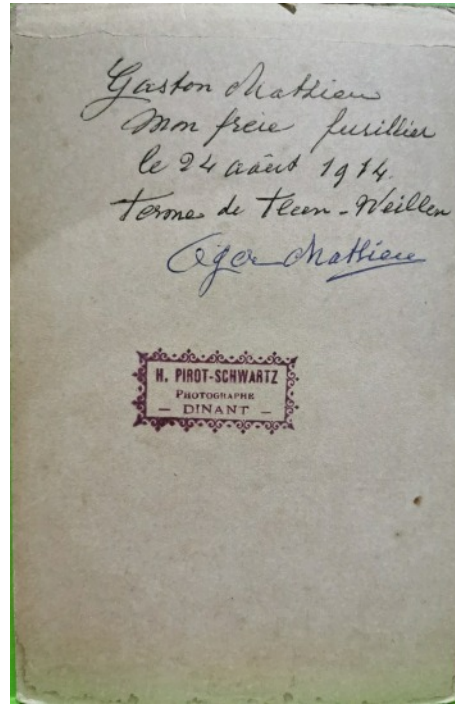 Gaston Mathieu
mon frère fusillier
le 24 août 1914
de Weillen
Mathieu
H. PIROT-SCHWARTZ
PHOTOGRAPHE
– DINANT –